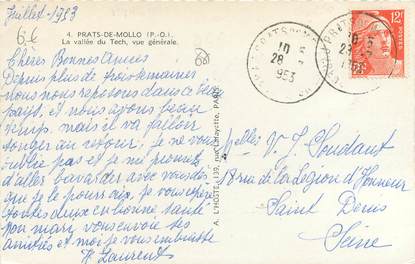 Juillet-1953
6f
4. PRATS-DE-MOLLO (P.-O.).
La vallée du Tech, vue générale.
68
Chères Bonnes Amies
Depuis plus de trois semaines
nous nous reposons dans ce beau
pays, et nous avons beau
temps, mais il va falloir
songer au retour, je ne vous
oublie pas et je me promets
d'aller bavarder avec vous dès
que je le pourrais, je vous espère
toutes deux en bonne santé
mon mari vous envoie ses
amitiés et moi je vous embrasse
H Laurent
A. L'HOSTE, 139, rue Lafayette, PARIS
10 H
28
1953
12F
POSTES
Melles V. J. Coudant
18 rue de la Légion d'Honneur
Saint Denis
Seine